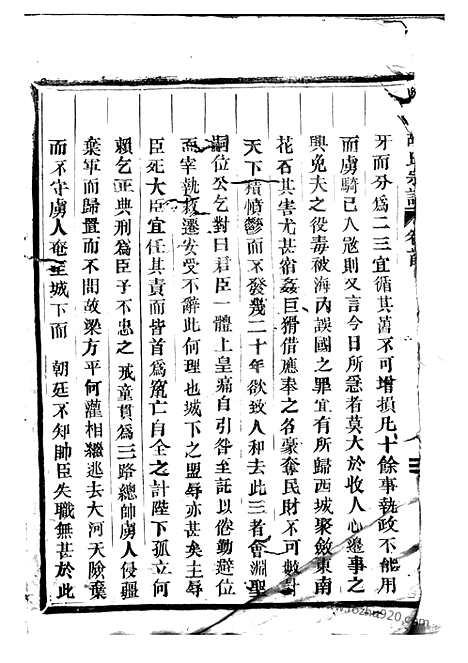 胡氏宗譜
牙而分為二三宜循其舊不可增損凡十餘事執政不能用
而虜騎已入寇則又言今日所急者莫大於收人心邊事之
興免夫之役毒被海內誤國之罪宜有所歸西城聚斂東南
花石其害尤甚宿姦巨猾借應奉之名豪奪民財不可數計
天下積憤鬱而不發幾二十年欲致人和去此三者會淵聖
嗣位公乞對曰君臣一體上皇痛自引咎至託以倦勤避位
而宰執叙遷安受不辭此何理也城下之盟辱亦甚矣主辱
臣死大臣宜任其責而皆首為竄亡自全之計陛下孤立何
賴乞正典刑為臣子不忠之戒童貫為三路總帥虜人侵疆
棄軍而歸置而不問故梁方平何灌相繼逃去大河天險棄
而不守虜人奄至城下而 朝廷不知帥臣失職無甚於此
www.fozhu920.com